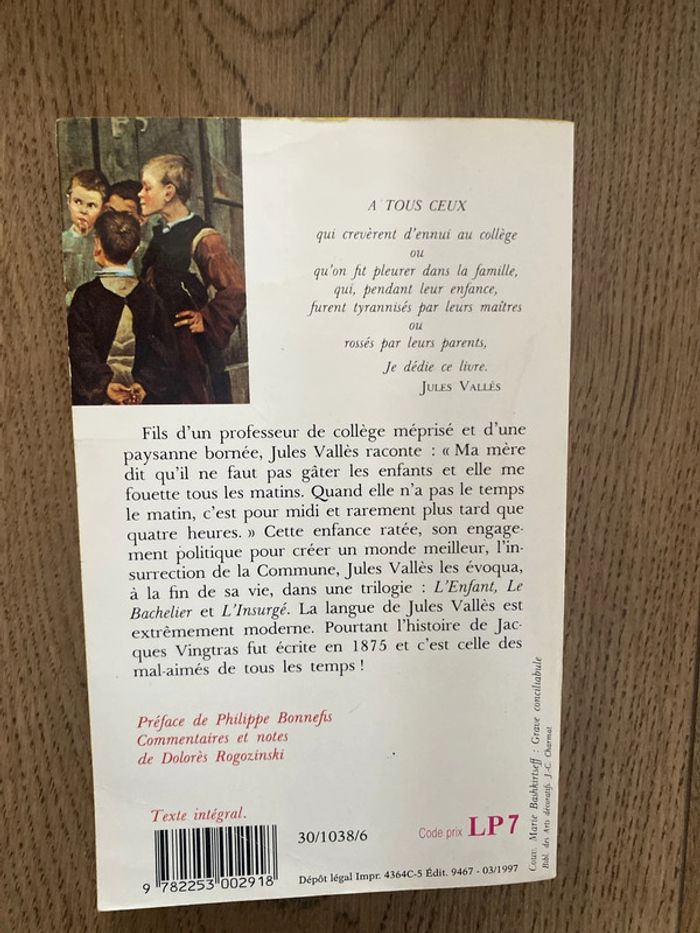 A TOUS CEUX
qui crevèrent d'ennui au collège
ou
qu'on fit pleurer dans la famille,
qui, pendant leur enfance,
furent tyrannisés par leurs maîtres
ou
rossés par leurs parents,
Je dédie ce livre.
JULES VALLÈS
Fils d'un professeur de collège méprisé et d'une
paysanne bornée, Jules Vallès raconte : « Ma mère
dit qu'il ne faut pas gâter les enfants et elle me
fouette tous les matins. Quand elle n'a pas le temps
le matin, c'est pour midi et rarement plus tard que
quatre heures. » Cette enfance ratée, son engage-
ment politique pour créer un monde meilleur, l'in-
surrection de la Commune, Jules Vallès les évoqua,
à la fin de sa vie, dans une trilogie : L'Enfant, Le
Bachelier et L'Insurgé. La langue de Jules Vallès est
extrêmement moderne. Pourtant l'histoire de Jac-
ques Vingtras fut écrite en 1875 et c'est celle des
mal-aimés de tous les temps !
Préface de Philippe Bonnefis
Commentaires et notes
de Dolorès Rogozinski
Texte intégral.
9 782253 002918
30/1038/6
Code prix LP 7
Dépôt légal Impr. 4364C-5 Édit. 9467 - 03/1997
Couv. Marie Bashkirtseff : Grave conciliabule
Bibl. des Arts décoratifs. J.-C. Charmat